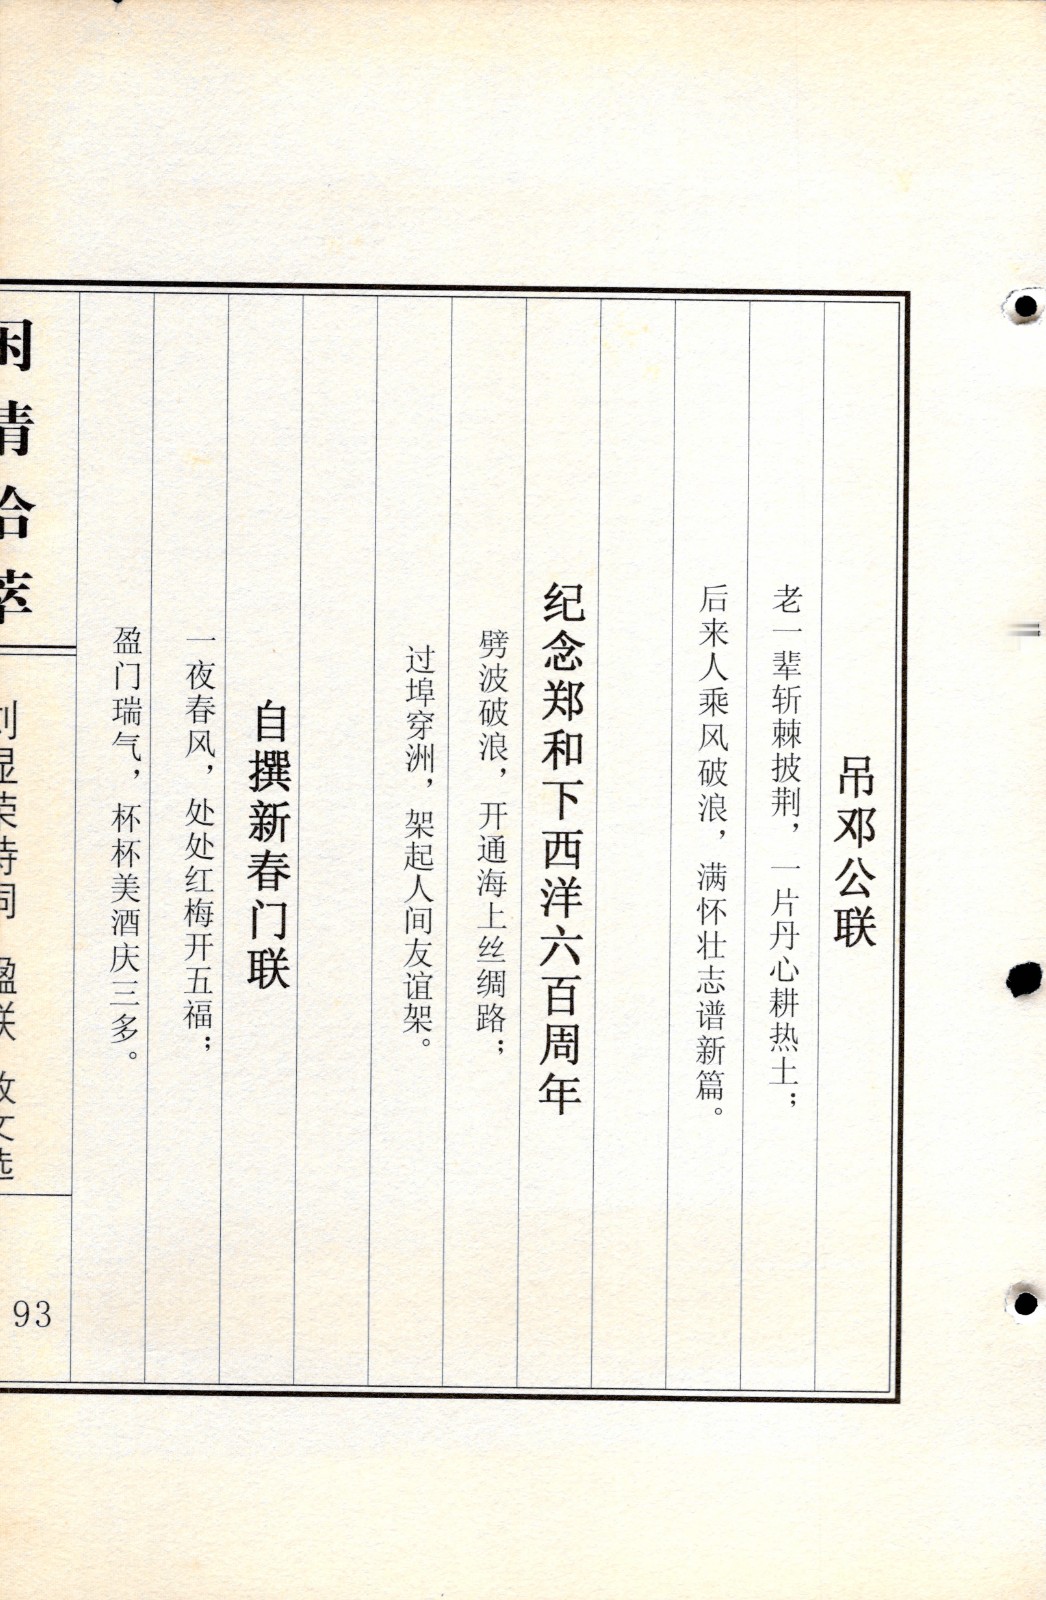 吊邓公联
老一辈斩棘披荆，一片丹心耕热土；
后来人乘风破浪，满怀壮志谱新篇。
纪念郑和下西洋六百周年
劈波破浪，开通海上丝绸路；
过埠穿洲，架起人间友谊架。
自撰新春门联
一夜春风，处处红梅开五福；
盈门瑞气，杯杯美酒庆三多。
情拾萃
刘显荣诗词 盈联 散文选
93